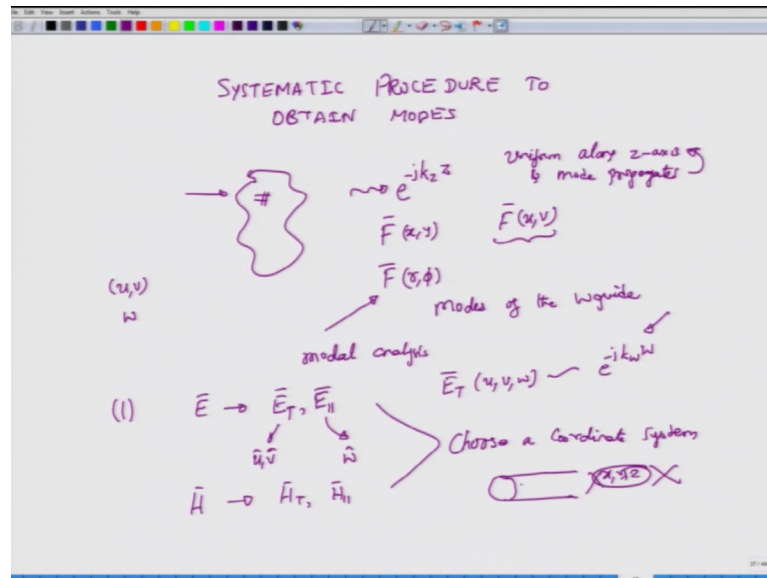 File Edit View Insert Actions Tools Help
SYSTEMATIC PROCEDURE TO
OBTAIN MODES
uniform along z-axis
& mode propagates
#
e^{-jk_z z}
F̄(x,y) F̄(u,v)
F̄(r,φ)
(u,v)
w
modes of the wguide
modal analysis
Ē_T (u,v,w) e^{-jk_w w}
(1) Ē → Ē_T, Ē_||
Choose a coordinate system
û,v̂ ŵ
x,y,z
H̄ → H̄_T, H̄_||